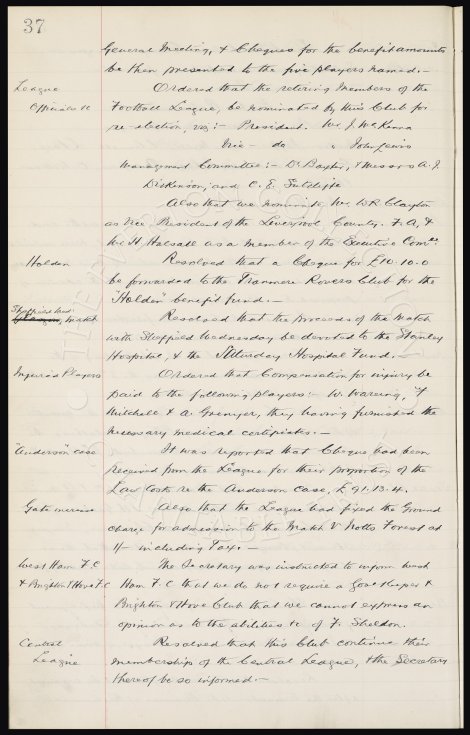 37
General Meeting, & Cheques for the benefit amounts
be then presented to the five players named.-
League
Officials &c
Ordered that the retiring Members of the
Football League, be nominated by this Club for
re-election, viz:- President. Mr. J. McKenna
Vice - do " John Lewis
Managment Committee:- Dr Baxter, & Messrs A. J.
Dickinson, and C. E. Sutcliffe
Also that we nominate Mr. W.R. Clayton
as Vice President of the Liverpool County. F.A, &
Mr H. Halsall as a member of the Executive Comtee.
Holden
Resolved that a Cheque for £10-10-0
be forwarded to the Tranmere Rovers Club for the
"Holden" benefit fund.-
Sheffield Wed:
match
Resolved that the proceeds of the Match
with Sheffield Wednesday be devoted to the Stanley
Hospital, & the Saturday Hospital Fund.-
Injured Players
Ordered that Compensation for injury be
paid to the following players:- W. Wareing, F
Mitchell & A. Grenyer, they having furnished the
necessary medical certificates.-
"Anderson" case
It was reported that Cheque had been
received from the League for their proportion of the
Law Costs re the Anderson case, £91.13.4.
Gate
Also that the League had fixed the Ground
charge for admission to the Match V Notts Forest at
1/- including Tax.-
West Ham F.C
& Brighton & Hove F.C
The Secretary was instructed to inform West
Ham F.C that we do not require a Goal Keeper &
Brighton & Hove Club that we cannot express an
opinion as to the abilities &c of F. Sheldon.
Central
League
Resolved that this Club continue their
membership of the Central League, & the Secretary
thereof be so informed.-